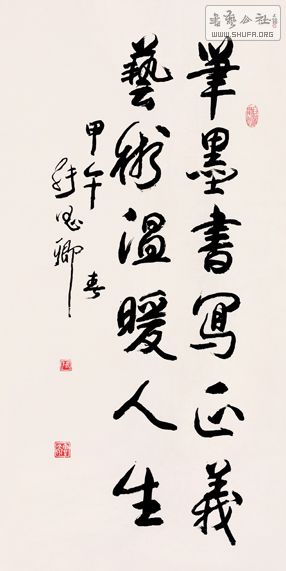 筆墨書寫正義
藝術溫暖人生
甲午春
書藝公社
WWW.SHUFA.ORG